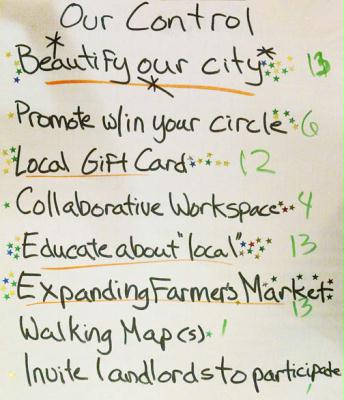 Our Control
Beautify our city 13
Promote w/in your circle 6
Local Gift Card 12
Collaborative Workspace 4
Educate about "local" 13
Expanding Farmer's Market
13
Walking Map(s) 1
Invite landlords to participate
1